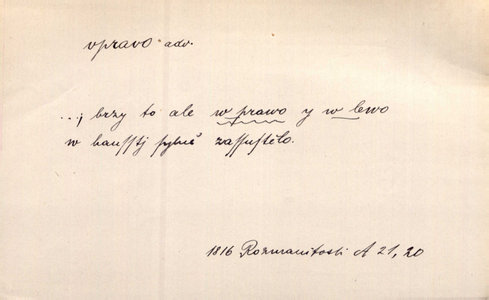 vpravo adv.
..., brzy to ale w prawo y w lewo
w hausstj zassustělo.
1816 Rozmanitosti A 21, 20